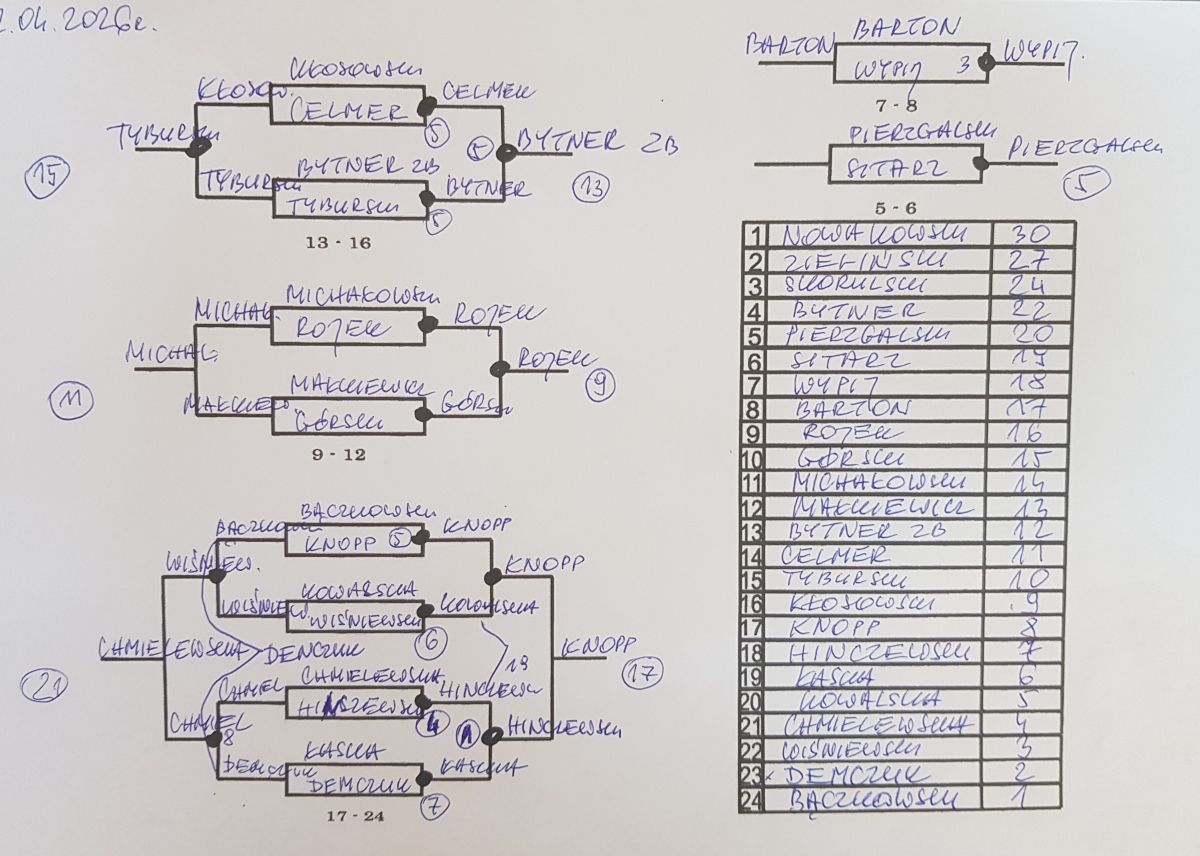 2.04.2026r.
KŁOSOWSKI
KŁOSOW. CELMER CELMER
5
TYBURSKI 5 BYTNER ZB
15 13
BYTNER ZB
TYBURSKI TYBURSKI BYTNER
5
13 - 16
MICHAŁOWSKI
MICHAŁ. ROJEK ROJEK
MICHAŁ. ROJEK
11 9
MAKKIEWICZ
MAKKIEW GÓRSKI GÓRSKI
9 - 12
BĄCZKOWSKI
BĄCZKOWSKI KNOPP 5 KNOPP
WIŚNIEW. KNOPP
KOWALSKA
WIŚNIEW WIŚNIEWSKI KOWALSKA
6
CHMIELEWSKA DEMCZUK 19 KNOPP
21 17
CHMIELEWSKA
CHMIEL HINCZEWSKI HINCZEWSKI
4
CHMIEL 8 1 HINCZEWSKI
KASKA
DEMCZUK DEMCZUK KASKA
7
17 - 24
BARTON
BARTON WYPIJ 3 WYPIJ.
7 - 8
PIERZGALSKI
SITARZ PIERZGALSKI
5
5 - 6
1 NOWAKOWSKI 30
2 ZIELIŃSKI 27
3 SKORULSKI 24
4 BYTNER 22
5 PIERZGALSKI 20
6 SITARZ 19
7 WYPIJ 18
8 BARTON 17
9 ROJEK 16
10 GÓRSKI 15
11 MICHAŁOWSKI 14
12 MAKKIEWICZ 13
13 BYTNER ZB 12
14 CELMER 11
15 TYBURSKI 10
16 KŁOSOWSKI 9
17 KNOPP 8
18 HINCZEWSKI 7
19 KASKA 6
20 KOWALSKA 5
21 CHMIELEWSKA 4
22 WIŚNIEWSKI 3
23 DEMCZUK 2
24 BĄCZKOWSKI 1